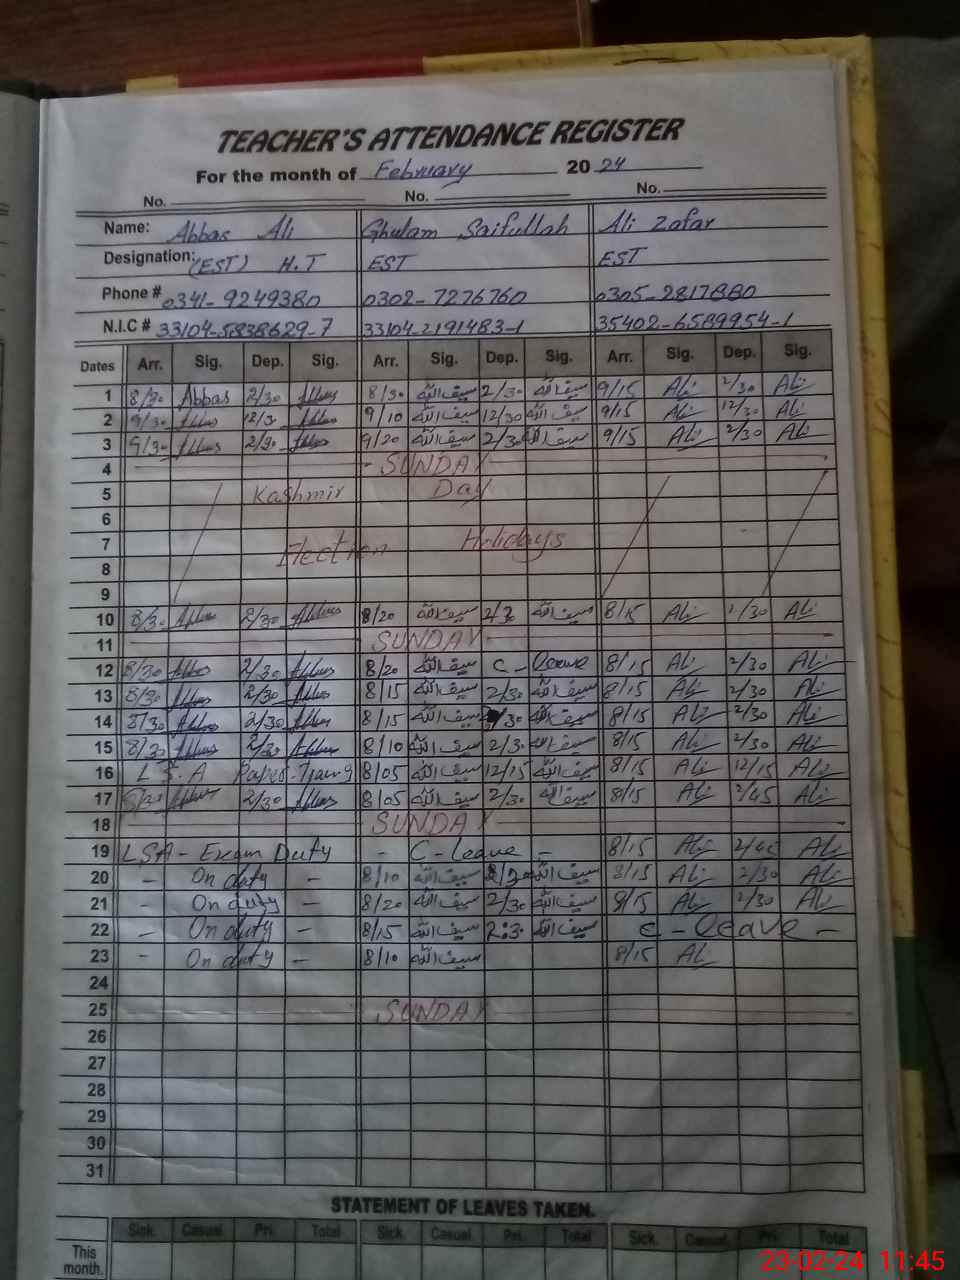 TEACHER'S ATTENDANCE REGISTER
For the month of February 2024
No. No. No.
Name: Abbas Ali Ghulam Saifullah Ali Zafar
Designation: (EST) H.T EST EST
Phone # 0341-9249380 0302-7276760 0305-2817880
N.I.C # 33104-5838629-7 33104-2191483-1 35402-6589954-1
Dates Arr. Sig. Dep. Sig. Arr. Sig. Dep. Sig. Arr. Sig. Dep. Sig.
1 8/30 Abbas 2/30 Abbas 8/30 سیف اللہ 2/30 سیف اللہ 9/15 Ali 2/30 Ali
2 9/30 Abbas 12/30 Abbas 9/10 سیف اللہ 12/30 سیف اللہ 9/15 Ali 12/30 Ali
3 9/30 Abbas 2/30 Abbas 9/20 سیف اللہ 2/30 سیف اللہ 9/15 Ali 2/30 Ali
4 SUNDAY
5 Kashmir Day
6
7 Election Holidays
8
9
10 8/30 Abbas 2/30 Abbas 8/20 سیف اللہ 2/3 سیف اللہ 8/15 Ali 1/30 Ali
11 SUNDAY
12 8/30 Abbas 2/30 Abbas 8/20 سیف اللہ C-Leave 8/15 Ali 2/30 Ali
13 8/30 Abbas 2/30 Abbas 8/15 سیف اللہ 2/30 سیف اللہ 8/15 Ali 2/30 Ali
14 8/30 Abbas 2/30 Abbas 8/15 سیف اللہ /30 سیف اللہ 8/15 Ali 2/30 Ali
15 8/30 Abbas 2/30 Abbas 8/10 سیف اللہ 2/3. سیف اللہ 8/15 Ali 2/30 Ali
16 L S A 8/05 سیف اللہ 12/15 سیف اللہ 8/15 Ali 12/15 Ali
17 8/30 Abbas 2/30 Abbas 8/05 سیف اللہ 2/30 سیف اللہ 8/15 Ali 2/45 Ali
18 SUNDAY
19 LSA - Exam Duty - C-Leave - 8/15 Ali Ali
20 - On duty - 8/10 سیف اللہ 2/30 سیف اللہ 8/15 Ali 2/30 Ali
21 - On duty - 8/20 سیف اللہ 2/30 سیف اللہ 9/15 Ali 2/30 Ali
22 - On duty - 8/15 سیف اللہ 2:3. سیف اللہ C-Leave -
23 - On duty - 8/10 سیف اللہ 8/15 Ali
24
25 SUNDAY
26
27
28
29
30
31
STATEMENT OF LEAVES TAKEN.
Sick. Casual Pri. Total Sick. Casual Pri. Total Sick. Casual. Pri. Total
This month.
23-02-24 11:45